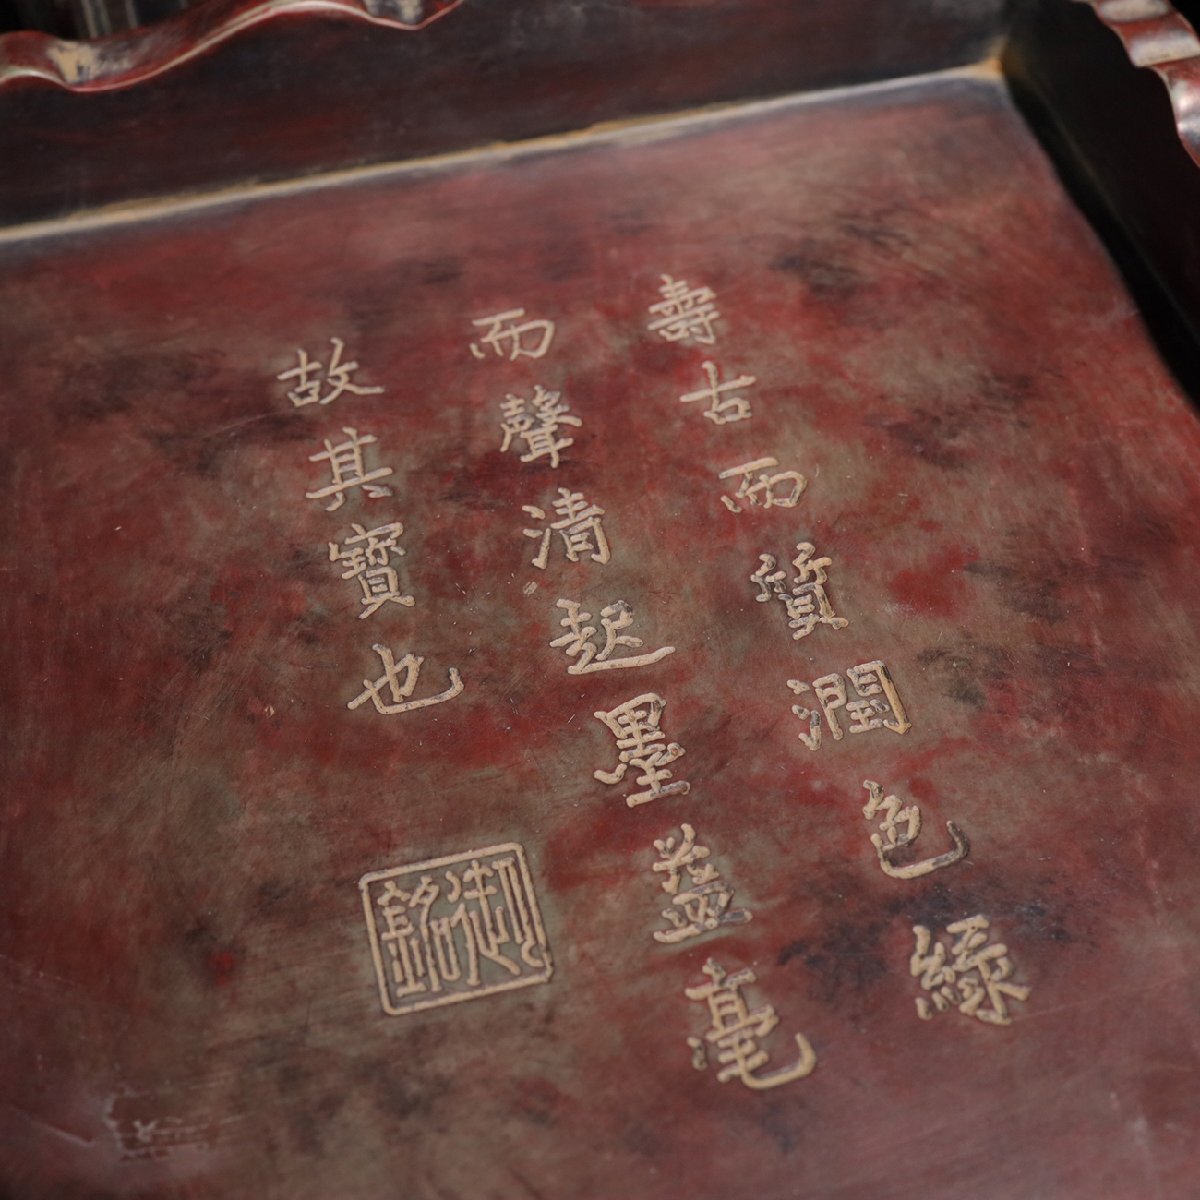 壽古而質潤色綠
而聲清起墨益毫
故其寶也
御銘